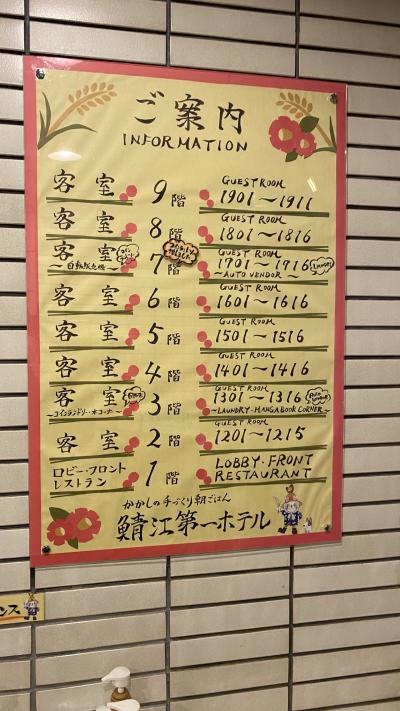 ご案内
INFORMATION
客室 9階 GUEST ROOM 1901〜1911
客室 8階 GUEST ROOM 1801〜1816
客室 7階 GUEST ROOM 1701〜1716
〜自動販売機〜 〜AUTO VENDOR〜
客室 6階 GUEST ROOM 1601〜1616
客室 5階 GUEST ROOM 1501〜1516
客室 4階 GUEST ROOM 1401〜1416
客室 3階 GUEST ROOM 1301〜1316
〜コインランドリー・本コーナー〜 〜LAUNDRY・MANGA BOOK CORNER〜
客室 2階 GUEST ROOM 1201〜1215
ロビー・フロント 1階 LOBBY・FRONT
レストラン RESTAURANT
かかしの手づくり朝ごはん
鯖江第一ホテル
ンス